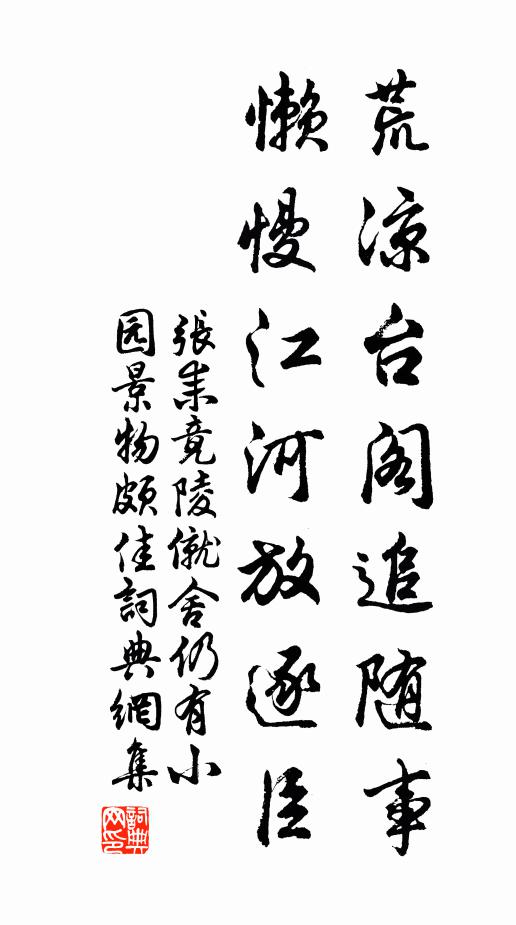 荒凉台阁追随事
懒慢江河放逐臣
張耒竟陵僦舍仍有小
园景物頗佳詞典網集
詞典
网印